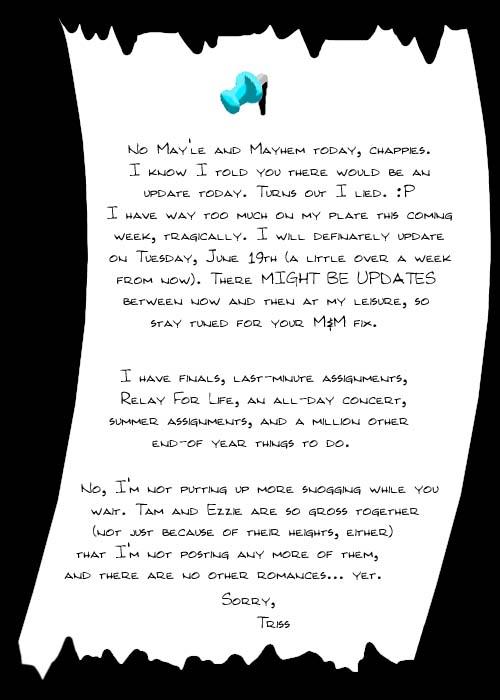 No May'le and Mayhem today, chappies.
I know I told you there would be an
update today. Turns out I lied. :P
I have way too much on my plate this coming
week, tragically. I will definately update
on Tuesday, June 19th (a little over a week
from now). There MIGHT BE UPDATES
between now and then at my leisure, so
stay tuned for your M&M fix.
I have finals, last-minute assignments,
Relay For Life, an all-day concert,
summer assignments, and a million other
end-of year things to do.
No, I'm not putting up more snogging while you
wait. Tam and Ezzie are so gross together
(not just because of their heights, either)
that I'm not posting any more of them,
and there are no other romances... yet.
Sorry,
Triss